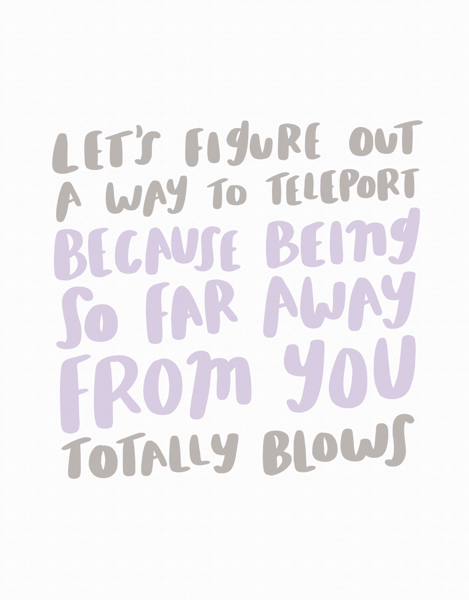 LET'S FIGURE OUT
A WAY TO TELEPORT
BECAUSE BEING
SO FAR AWAY
FROM YOU
TOTALLY BLOWS